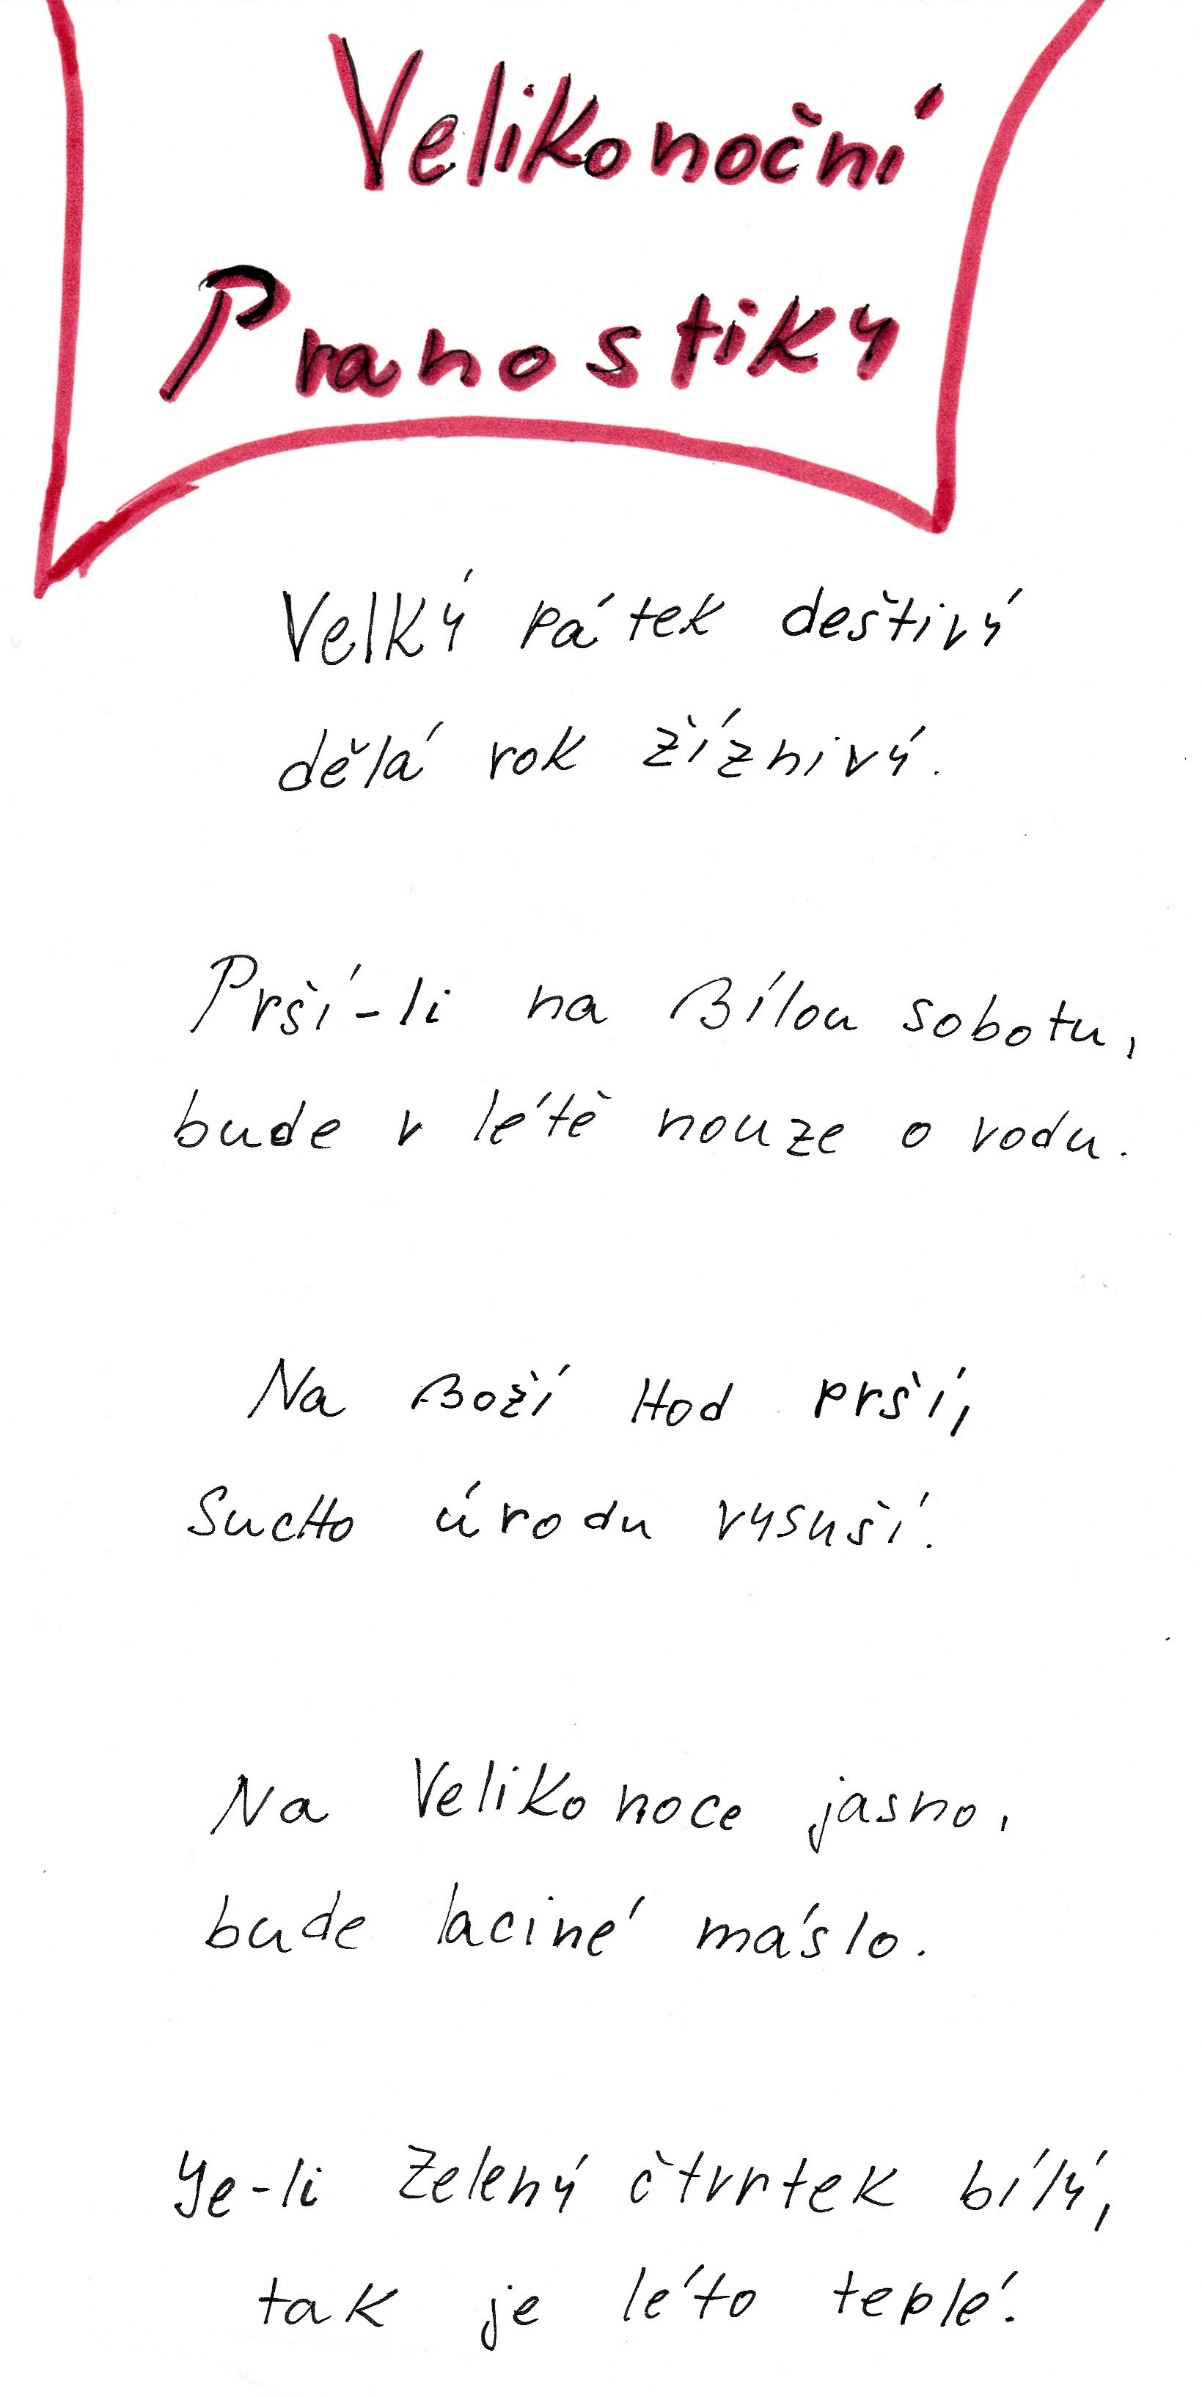 Velikonoční
Pranostiky
Velký pátek deštivý
dělá rok žíznivý.
Prší-li na Bílou sobotu,
bude v létě nouze o vodu.
Na Boží Hod prší,
Sucho úrodu vysuší.
Na Velikonoce jasno,
bude laciné máslo.
Je-li Zelený čtvrtek bílý,
tak je léto teplé.